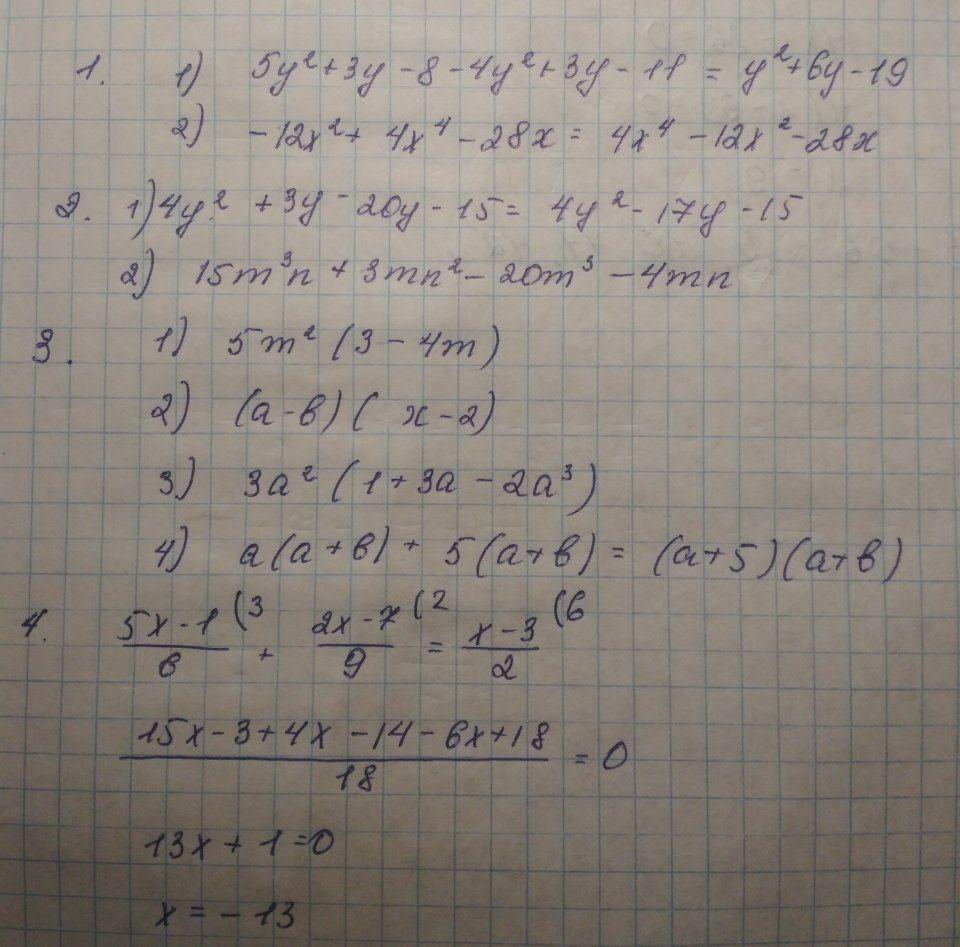 1. 1) 5y²+3y-8-4y²+3y-11 = y²+6y-19
2) -12x²+ 4x⁴-28x = 4x⁴-12x²-28x
2. 1) 4y² +3y-20y-15= 4y²-17y-15
2) 15m³n + 3mn²-20m³-4mn
3. 1) 5m² (3-4m)
2) (a-в)( x-2)
3) 3a² (1+3a-2a³)
4) a(a+в)+ 5(a+в)= (a+5)(a+в)
4. (5x-1)/6 (3 + (2x-7)/9 (2 = (x-3)/2 (6
(15x-3+4x-14-6x+18)/18 = 0
13x+1=0
x=-13